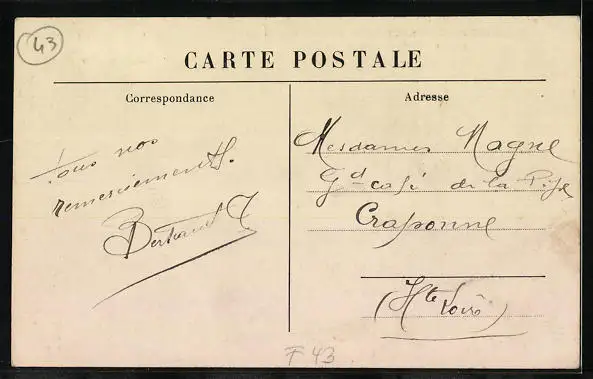 43
CARTE POSTALE
Correspondance
Tous nos
remerciements.
Bertrand
Adresse
Mesdames Magne
Gd café de la
Craponne
(Hte Loire)
F 43